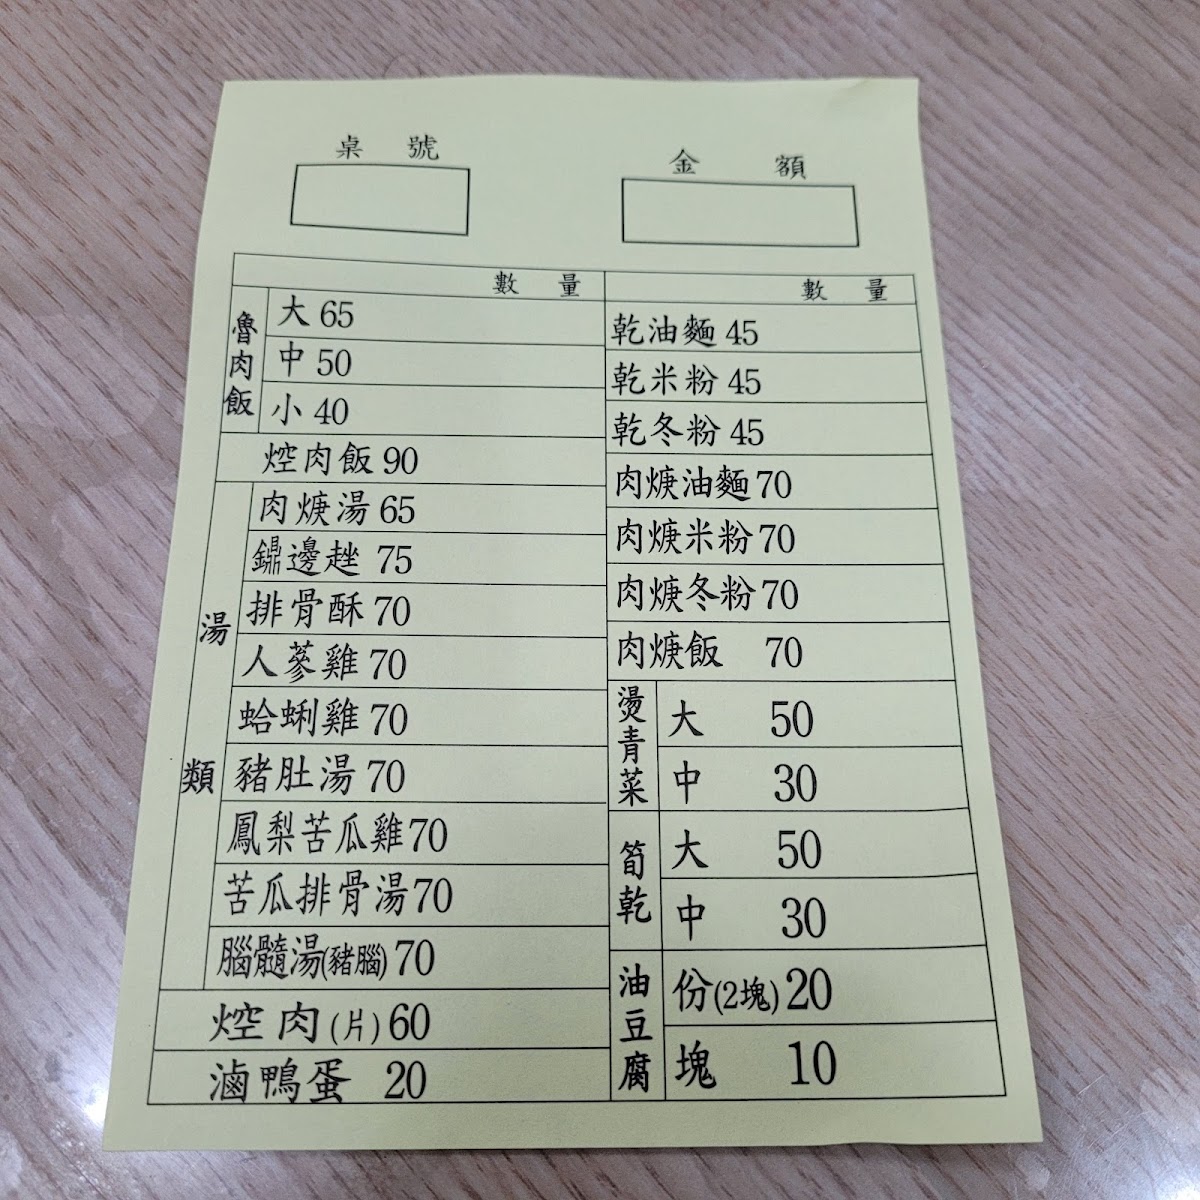 桌號
金額
數量
魯肉飯
大 65
中 50
小 40
焢肉飯 90
湯類
肉焿湯 65
鼎邊趖 75
排骨酥 70
人蔘雞 70
蛤蜊雞 70
豬肚湯 70
鳳梨苦瓜雞 70
苦瓜排骨湯 70
腦髓湯(豬腦) 70
焢肉(片) 60
滷鴨蛋 20
數量
乾油麵 45
乾米粉 45
乾冬粉 45
肉焿油麵 70
肉焿米粉 70
肉焿冬粉 70
肉焿飯 70
燙青菜
大 50
中 30
筍乾
大 50
中 30
油豆腐
份(2塊) 20
塊 10